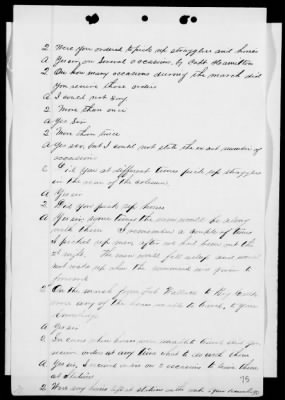 Q Were you ordered to pick up stragglers and horses
A Yes sir, on several occasions, by Capt. Hamilton
Q On how many occasions during the march did
you receive those orders
A I could not say
Q More than once
A Yes Sir
Q More than twice
A Yes sir, but I could not state the exact number of
occasions
Q Did you at different times pick up stragglers
in the rear of the column
A Yes sir
Q Did you pick up horses
A Yes sir, some times the men would be along
with them I remember a couple of times
I picked up men after we had been out the
2d night. The men would fall asleep and would
not wake up when the command was given to
forward
Q On the march from Fort Wallace to Big Creek
were any of the horses unable to travel, to your
knowledge
A Yes sir
Q In cases when horses were unable to travel did you
receive orders at any time what to do with them
A Yes sir, I received orders on 2 occasions to leave them
at Stations
75
Q Were any horses left at stations with your knowledge